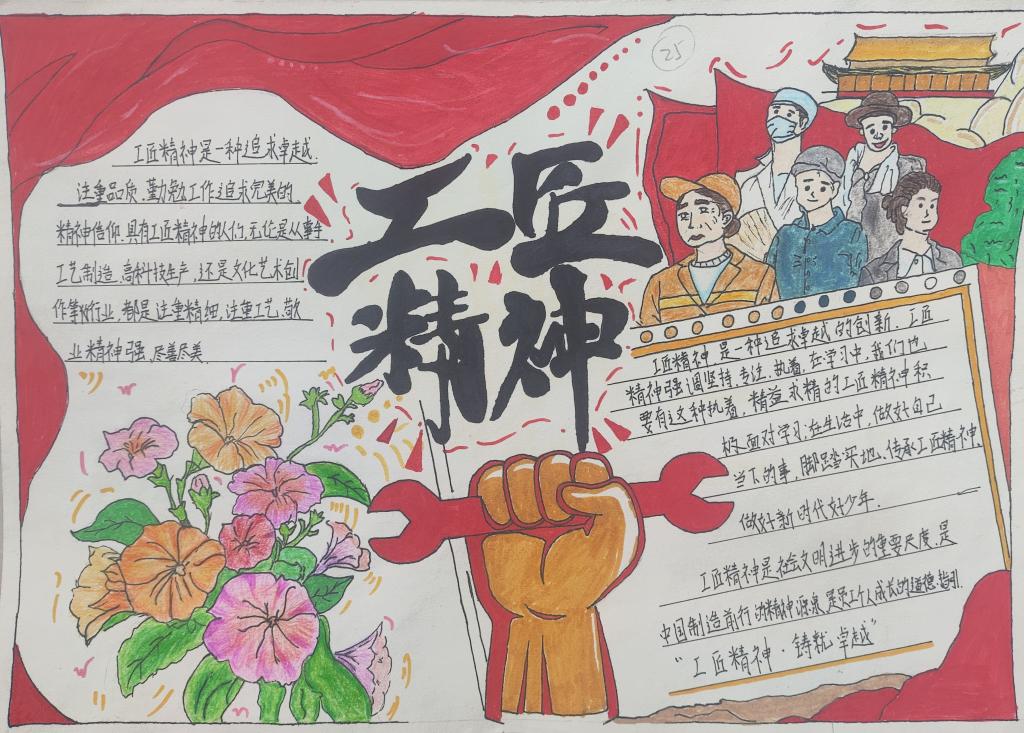 25
工匠精神是一种追求卓越.
注重品质,勤勉工作追求完美的
精神信仰.具有工匠精神的人们,无论是从事
工艺制造.高科技生产,还是文化艺术创
作等的行业,都是注重精细,注重工艺,敬
业精神强,尽善尽美
工匠
精神
工匠精神是一种追求卓越的创新.工匠
精神强调坚持,专注,执着,在学习中,我们也
要有这种执着,精益求精的工匠精神积
极面对学习,在生活中,做好自己
当下的事,脚踏实地,传承工匠精神,
做好新时代好少年.
工匠精神是社会文明进步的重要尺度,是
中国制造前行的精神源泉,是个人成长的道德指引.
“工匠精神·铸就卓越”